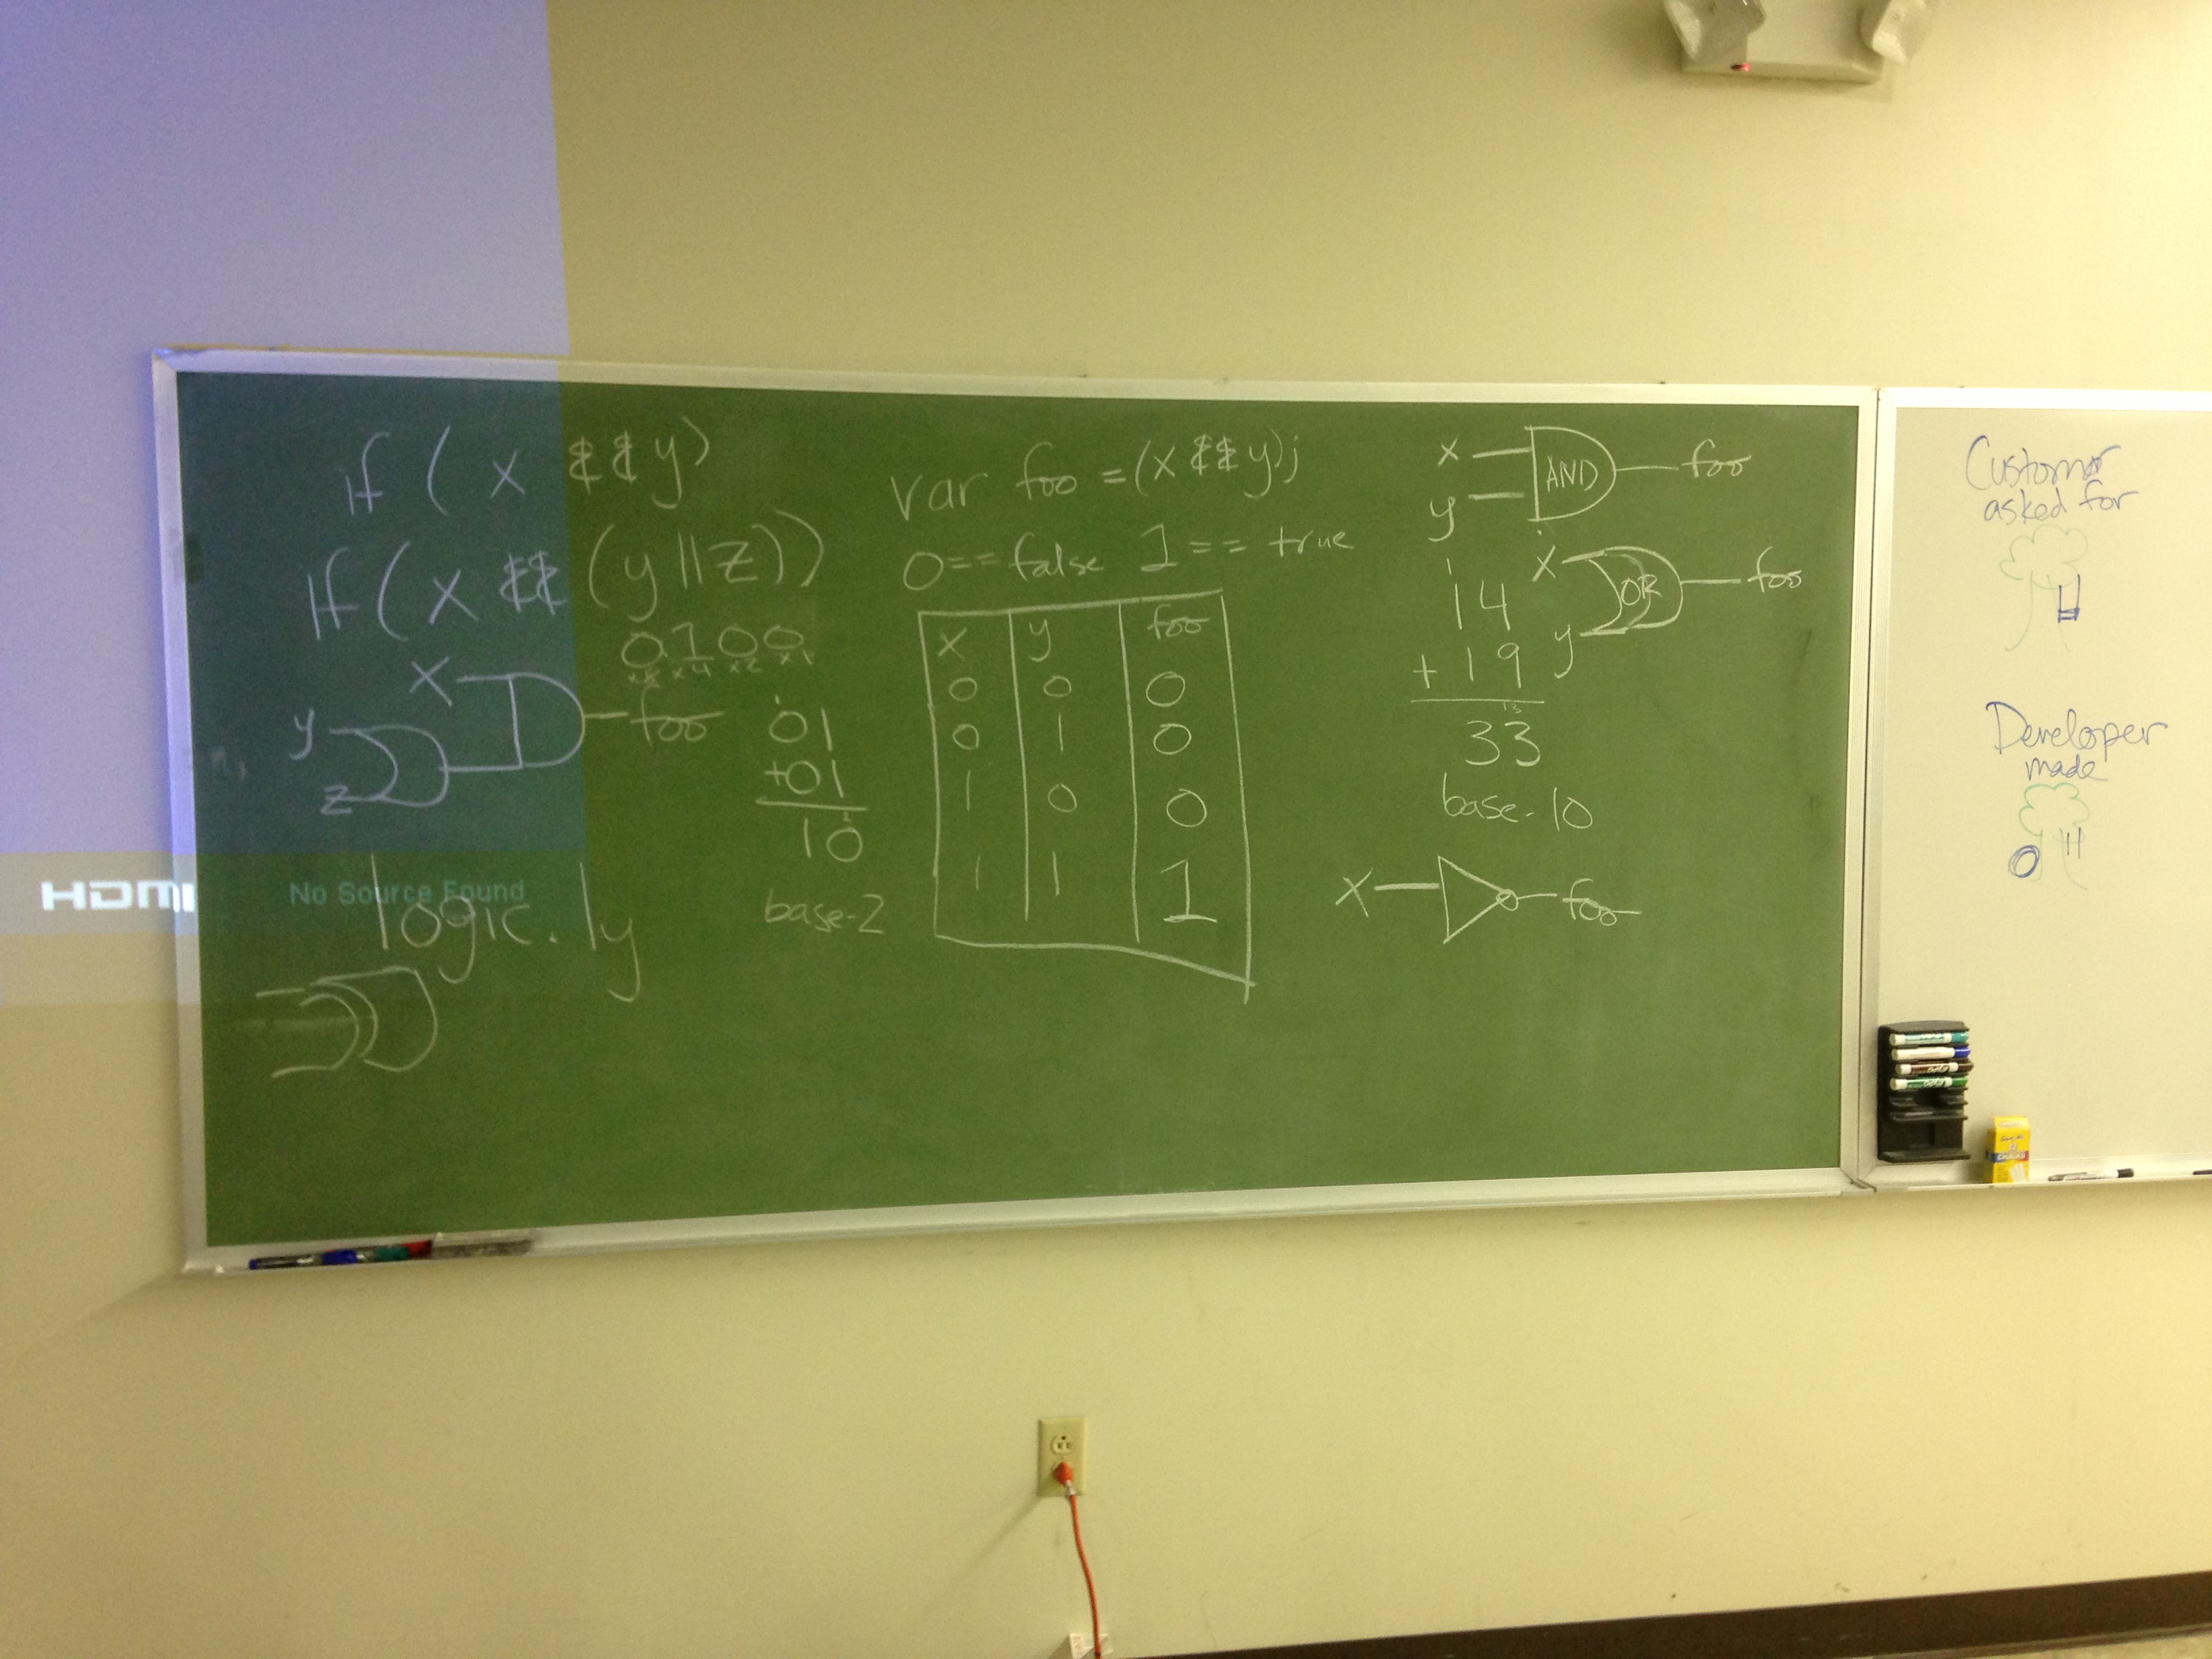 if ( x && y)
if ( x && (y || z))
0100
x8 x4 x2 x1
x
y
z
foo
1
01
+01
10
base-2
HDMI
No Source Found
logic.ly
var foo = (x && y);
0== false 1 == true
x y foo
0 0 0
0 1 0
1 0 0
1 1 1
x
y
AND
foo
x
y
OR
foo
1
14
+ 19
13
33
base-10
x
foo
Customer
asked for
Developer
made